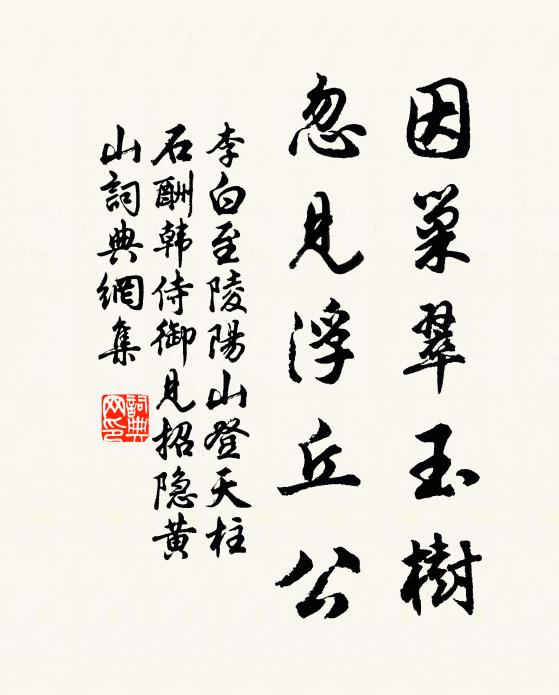 因巢翠玉樹
忽見浮丘公
李白至陵陽山登天柱
石酬韩侍御見招隐黄
山詞典網集
詞典
网印